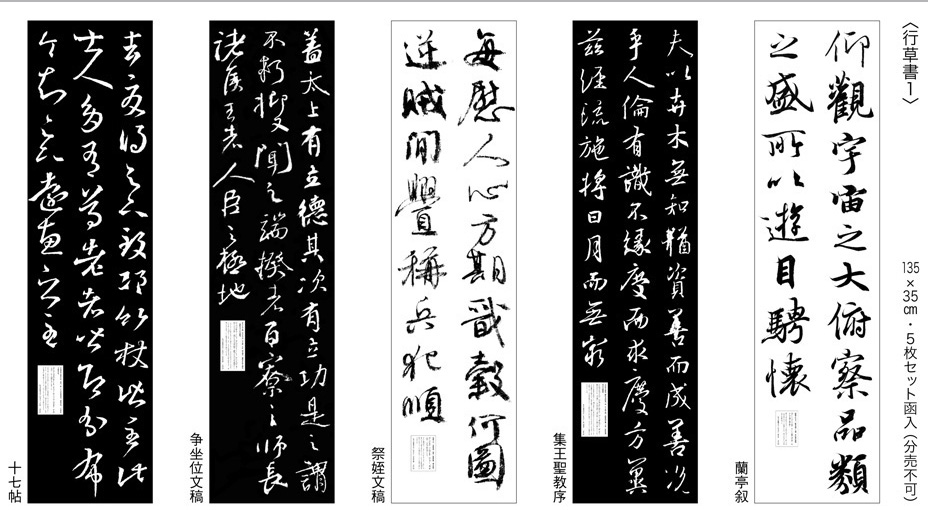 〈行草書1〉
135×35㎝・5枚セット函入(分売不可)
仰觀宇宙之大俯察品類
之盛所以遊目騁懷
蘭亭叙
夫以卉木無知猶資善而成善況
乎人倫有識不緣慶而求慶方冀
茲經流施將日月而無窮
集王聖教序
每慰人心方期戩穀何圖
逆賊間釁稱兵犯順
祭姪文稿
蓋太上有立德其次有立功是之謂
不朽抑又聞之端揆者百寮之師長
諸侯王者人臣之極地
争坐位文稿
去夏得足下致邛竹杖皆至此
士人多有尊老者皆即分布
令知足下遠惠之至
十七帖